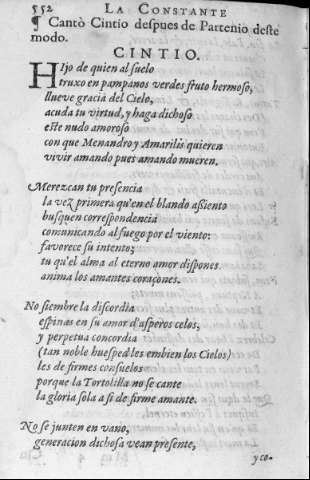 552 LA CONSTANTE
¶ Cantò Cintio despues de Partenio deste
modo.
CINTIO.
HIjo de quien al suelo
truxo en pampanos verdes fruto hermoso,
llueve gracia del Cielo,
acuda tu virtud, y haga dichoso
este nudo amoroso
con que Menandro y Amarilis quieren
vivir amando pues amando mueren.
Merezcan tu presencia
la vez primera qu'en el blando assiento
busquen correspondencia
comunicando al fuego por el viento:
favorece su intento;
tu qu'el alma al eterno amor dispones
anima los amantes coraçones.
No siembre la discordia
espinas en su amor d'asperos celos,
y perpetua concordia
(tan noble huesped les embien los Cielos)
les de firmes consuelos
porque la Tortolilla no se cante
la gloria sola a si de firme amante.
No se junten en vano,
generacion dichosa vean presente,
yco-